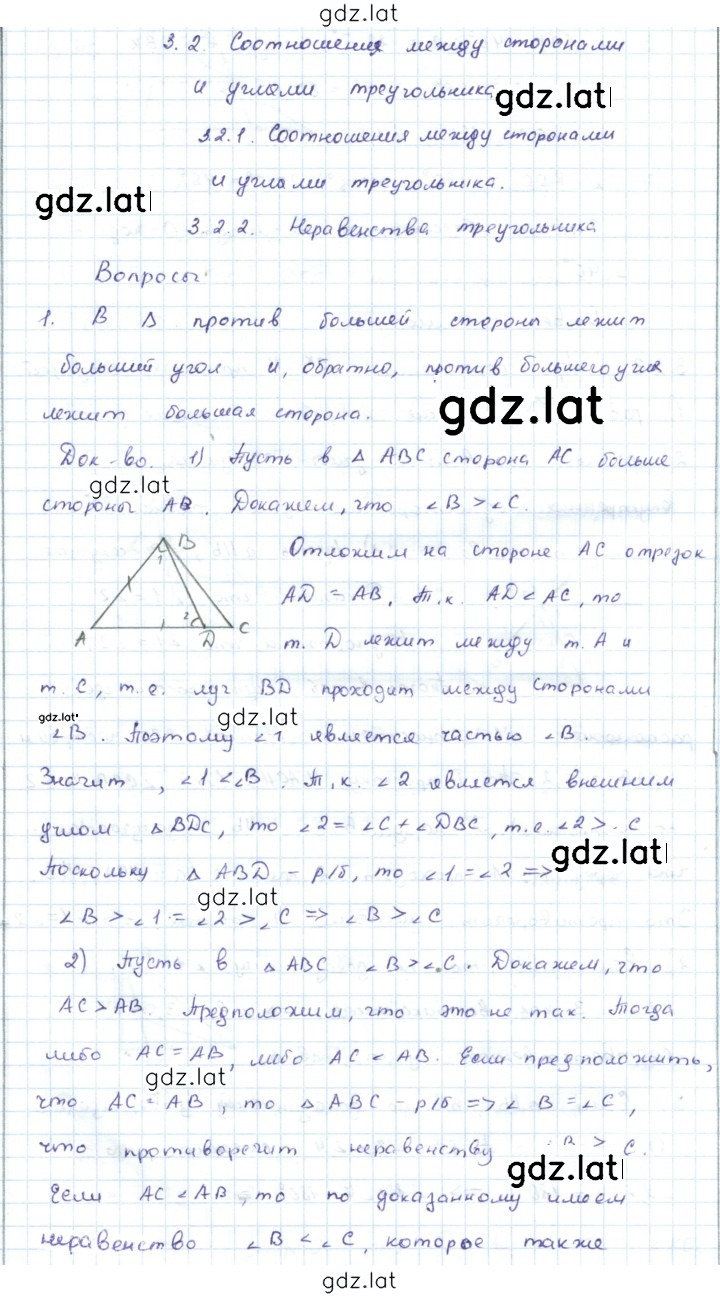 gdz.lat
3.2. Соотношения между сторонами
и углами треугольника
gdz.lat
3.2.1. Соотношения между сторонами
и углами треугольника.
gdz.lat
3.2.2. Неравенства треугольника
Вопросы:
1. В Δ против большей стороны лежит
больший угол и, обратно, против большего угла
лежит большая сторона.
gdz.lat
Док-во. 1) Пусть в Δ ABC сторона AC больше
gdz.lat
стороны AB. Докажем, что ∠B > ∠C.
B
1
2
A
D
C
Отложим на стороне AC отрезок
AD = AB. Т.к. AD < AC, то
т. D лежит между т. A и
т. C, т.е. луч BD проходит между сторонами
gdz.lat
gdz.lat
∠B. Поэтому ∠1 является частью ∠B
Значит, ∠1 < ∠B. Т.к. ∠2 является внешним
углом Δ BDC, то ∠2 = ∠C + ∠DBC, т.е. ∠2 > C
gdz.lat
Поскольку Δ ABD - р/б, то ∠1 = ∠2 =>
gdz.lat
∠B > ∠1 = ∠2 > ∠C => ∠B > ∠C
2) Пусть в Δ ABC ∠B > ∠C. Докажем, что
AC > AB. Предположим, что это не так. Тогда
либо AC = AB, либо AC < AB. Если предположить,
gdz.lat
что AC = AB, то Δ ABC - р/б => ∠B = ∠C,
что противоречит неравенству B > C.
gdz.lat
Если AC < AB, то по доказанному имеем
неравенство ∠B < ∠C, которое также
gdz.lat